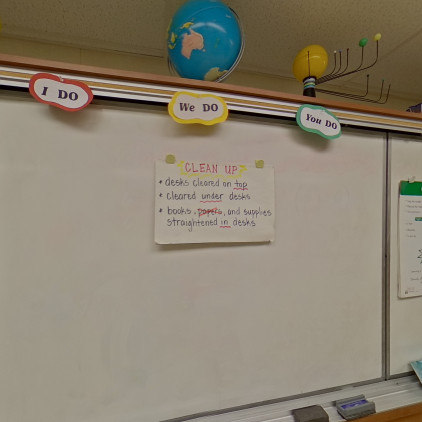 I DO
We DO
You DO
CLEAN UP
* desks cleared on top
* cleared under desks
* books, papers, and supplies
straightened in desks